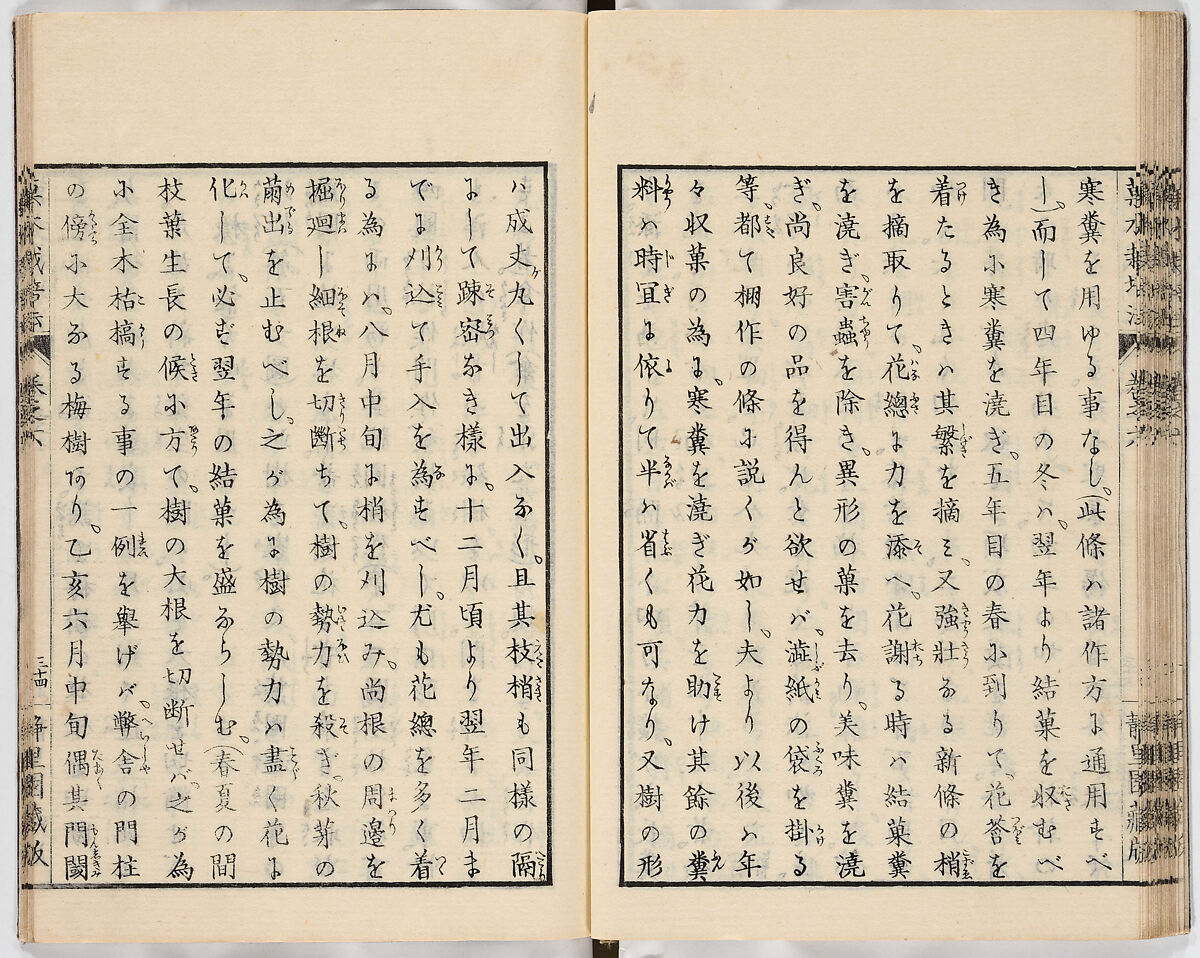 寒糞を用ゆる事なし。(此條ハ諸作方に通用すべ
し)而して四年目の冬ハ、翌年より結菓を収むべ
き為に寒糞を澆ぎ、五年目の春に到りて、花蕾を
着たるときハ其繁を摘ミ、又強壮なる新條の梢
を摘取りて、花總に力を添へ、花謝る時ハ結菓糞
を澆ぎ、害蟲を除き、異形の菓を去り、美味糞を澆
ぎ、尚良好の品を得んと欲せバ、澁紙の袋を掛る
等、都て棚作の條に説くが如し、夫より以後ハ年
々収菓の為に、寒糞を澆ぎ花力を助け其餘の糞
料ハ時冝に依りて半ハ省くも可なり、又樹の形
ハ成丈ケ丸くして出入なく、且其枝梢も同様の隔
にして踈密なき様に、十二月頃より翌年二月ま
でに刈込て手入を為すべし、尤も花總を多く着
る為にハ、八月中旬に梢を刈込み、尚根の周邉を
堀廻し細根を切断ちて、樹の勢力を殺ぎ、秋芽の
萠出を止むべし、之が為に樹の勢力ハ盡く花に
化して、必ず翌年の結菓を盛ならしむ、(春夏の間
枝葉生長の候に方て、樹の大根を切断せバ、之が為
に全木枯槁する事の一例を舉げバ、弊舎の門柱
の傍に大なる梅樹あり、乙亥六月中旬偶其門閾
巻之六
三十四
静里園蔵版